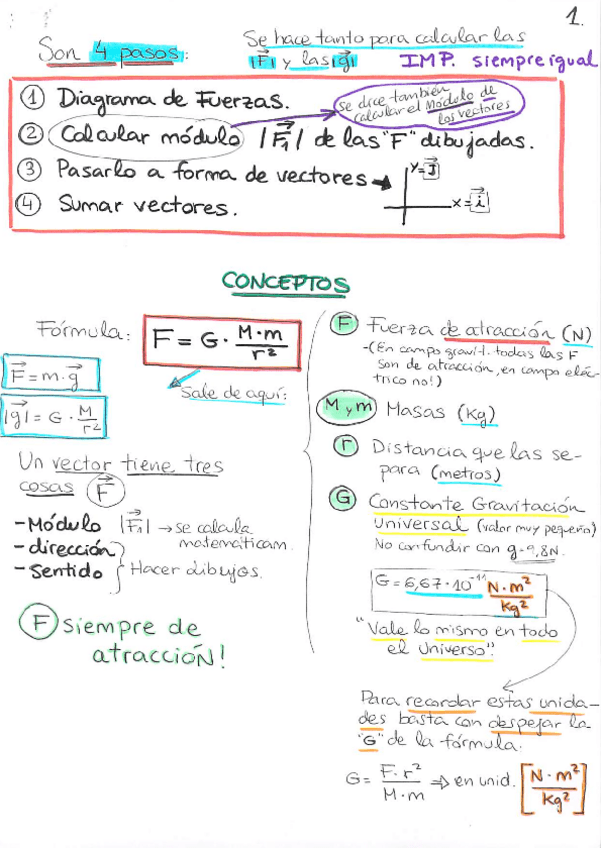 1.
Son 4 pasos:
Se hace tanto para calcular las
|F⃗| y las |g⃗|
IMP. siempre igual
① Diagrama de Fuerzas.
Se dice también
calcular el Módulo de
los vectores
② Calcular módulo |F⃗₁| de las "F" dibujadas.
③ Pasarlo a forma de vectores → y=J⃗
x=i⃗
④ Sumar vectores.
CONCEPTOS
Fórmula: F = G · M·m / r²
F⃗=m·g⃗
Sale de aquí:
|g⃗| = G · M / r²
Un vector tiene tres
cosas F⃗
- Módulo |F⃗₁| → se calcula
matemáticam.
- dirección
- Sentido } Hacer dibujos.
F siempre de
atracción!
F Fuerza de atracción (N)
-(En campo gravit. todas las F
son de atracción, en campo eléc-
trico no!)
M y m Masas (Kg)
r Distancia que las se-
para (metros)
G Constante Gravitación
Universal (valor muy pequeño)
No confundir con g=9,8N.
G = 6,67·10⁻¹¹ N·m² / Kg²
"Vale lo mismo en todo
el Universo".
Para recordar estas unida-
des basta con despejar la
"G" de la fórmula.
G = F·r² / M·m ⇒ en unid. [N·m² / Kg²]